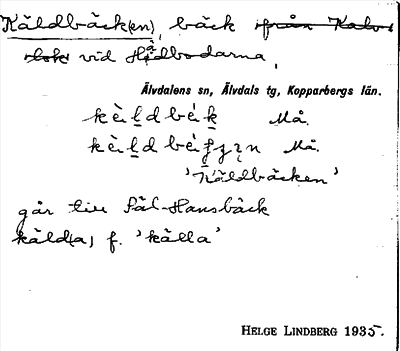 Käldbäck(en), bäck från Kalvs
loks vid Hädbodarna,
Älvdalens sn, Älvdals tg, Kopparbergs län.
Må.
Må.
'Käldbäcken'
går till Pål-Hansbäck
käld(a) f. 'källa'
HELGE LINDBERG 1935.